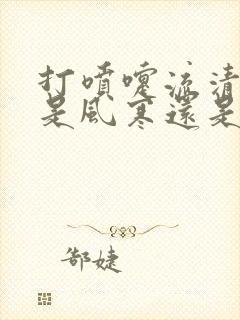 打噴嚏流清
是風寒還是
郜婕